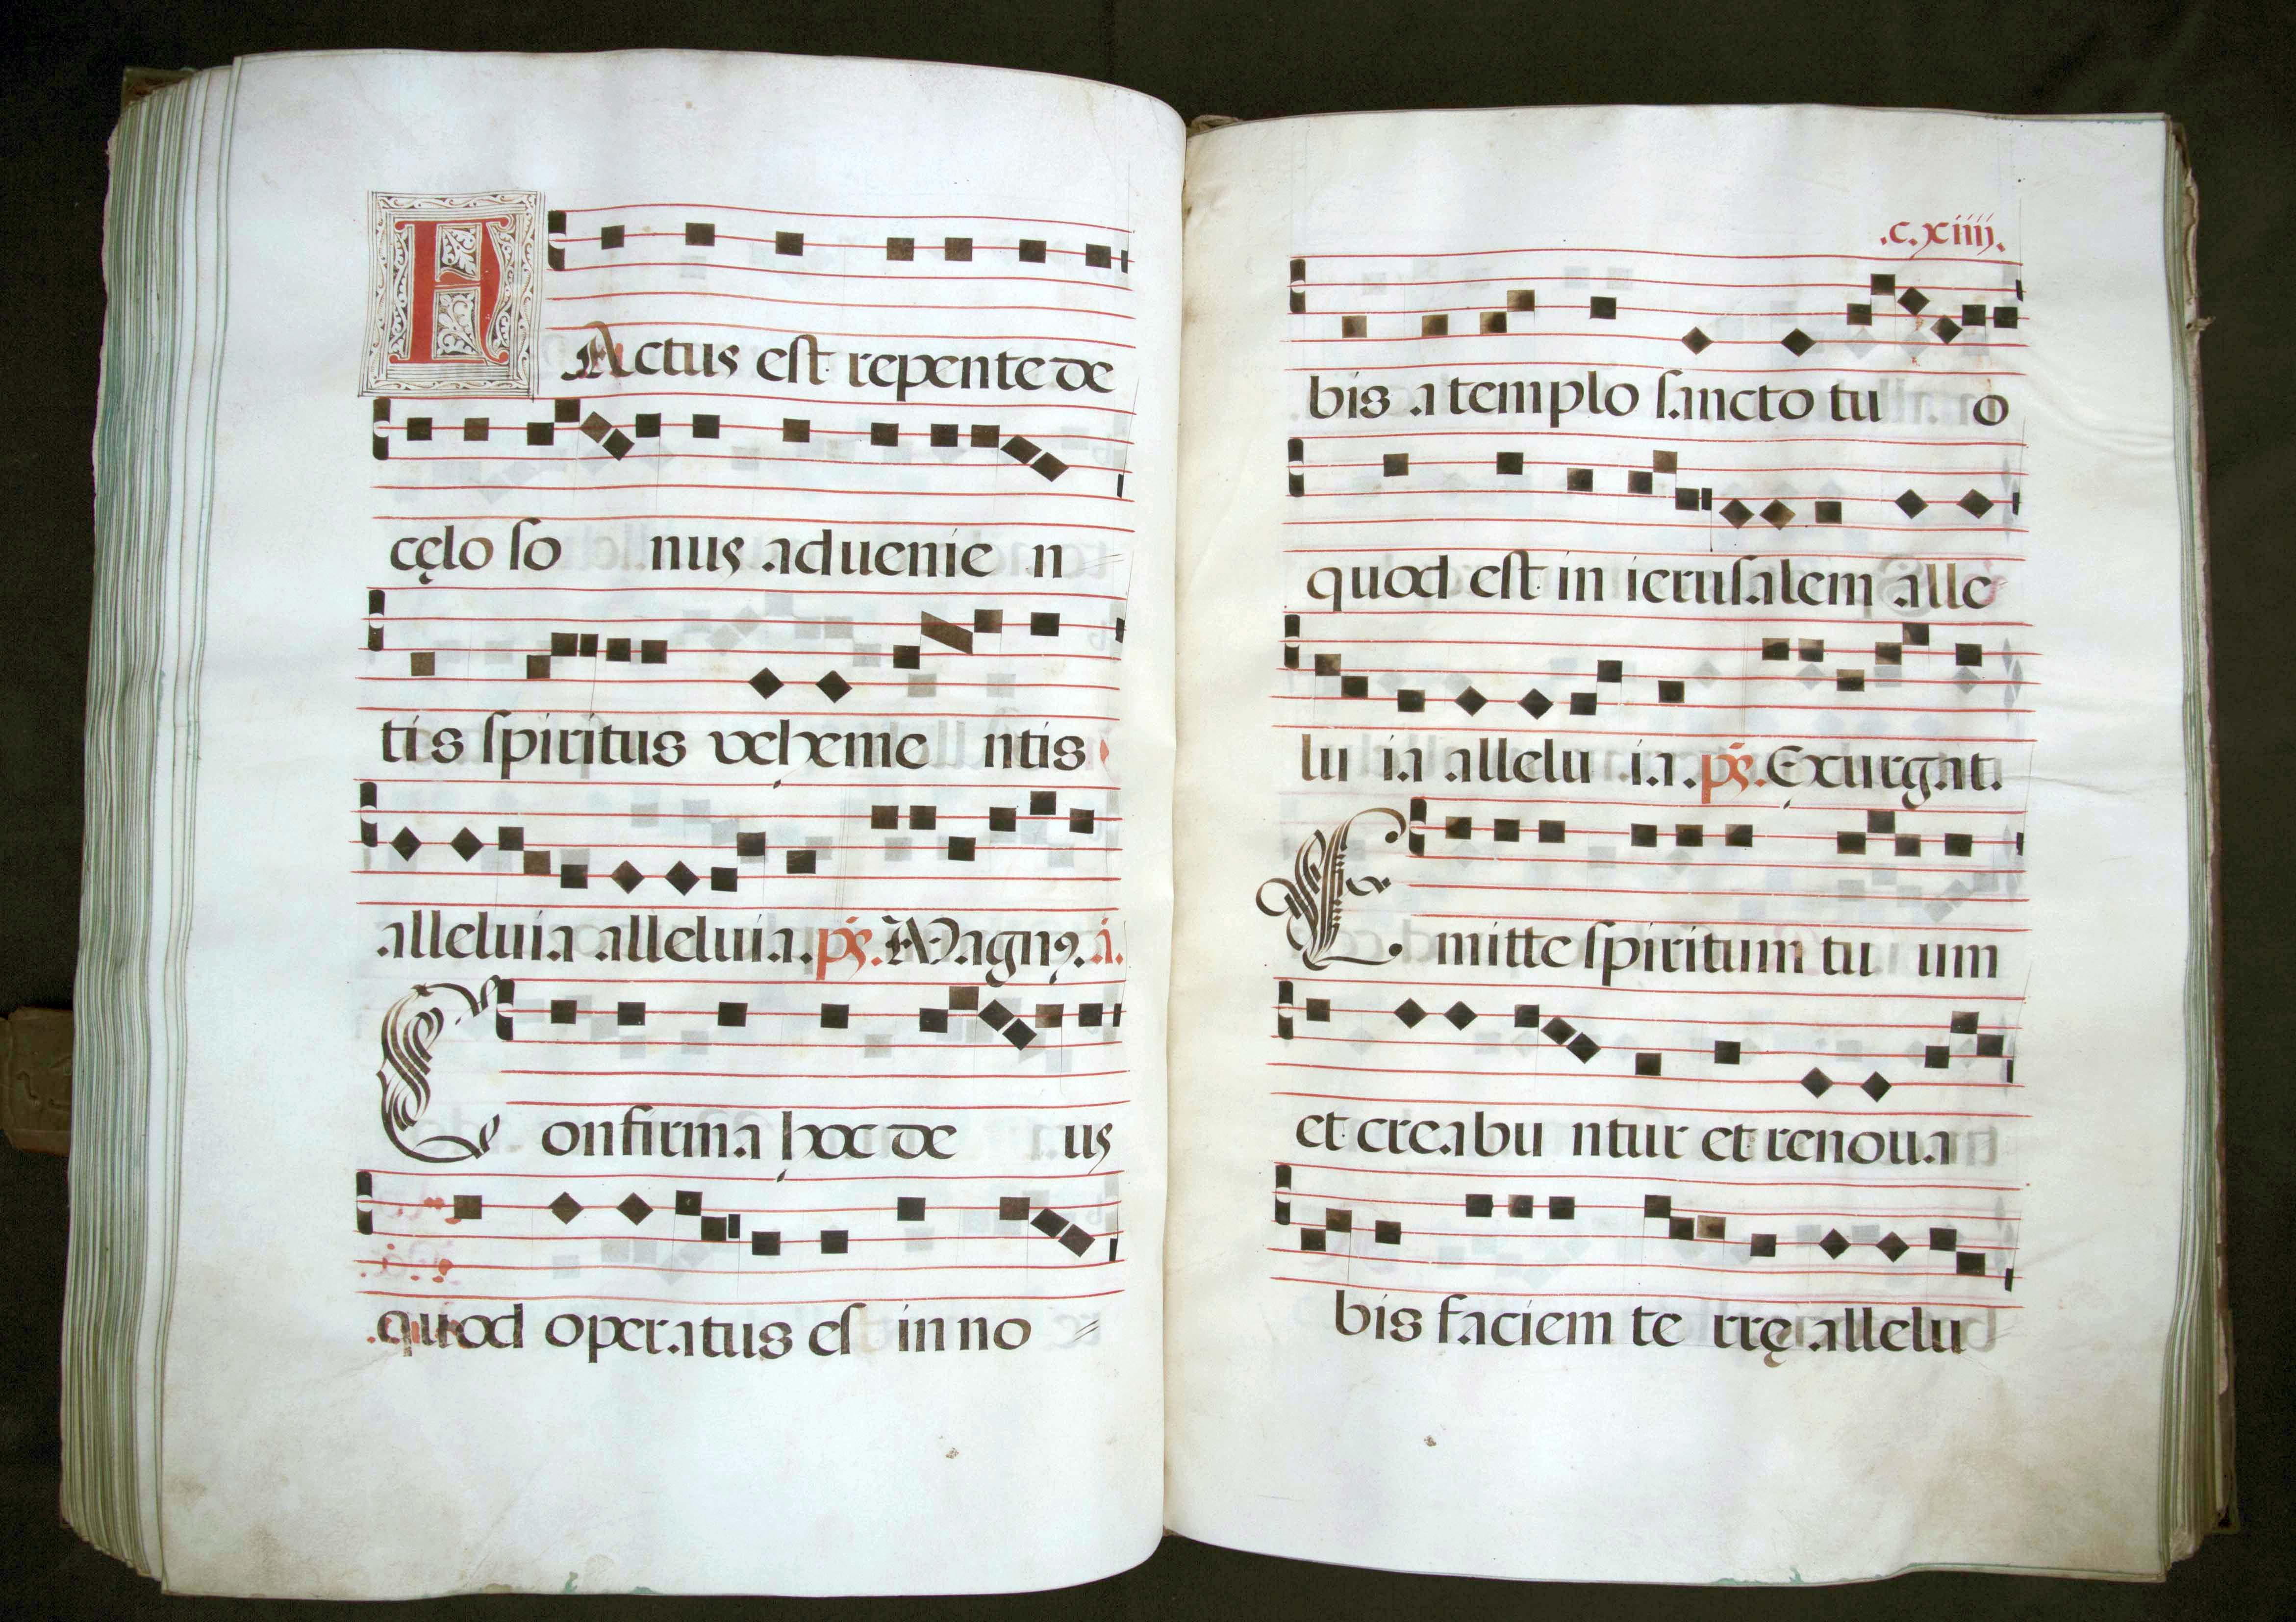 FActus est repente de
cęlo so nus aduenie n
tis spiritus veheme ntis
alleluia alleluia. ps. Magnꝰ. i.
Confirma hoc de us
quod operatus es in no
.c.xiiij.
bis a templo sancto tu o
quod est in ierusalem alle
lu ia allelu ia. ps. Exurgat.
Emitte spiritum tu um
et creabu ntur et renoua
bis faciem te rrę allelu